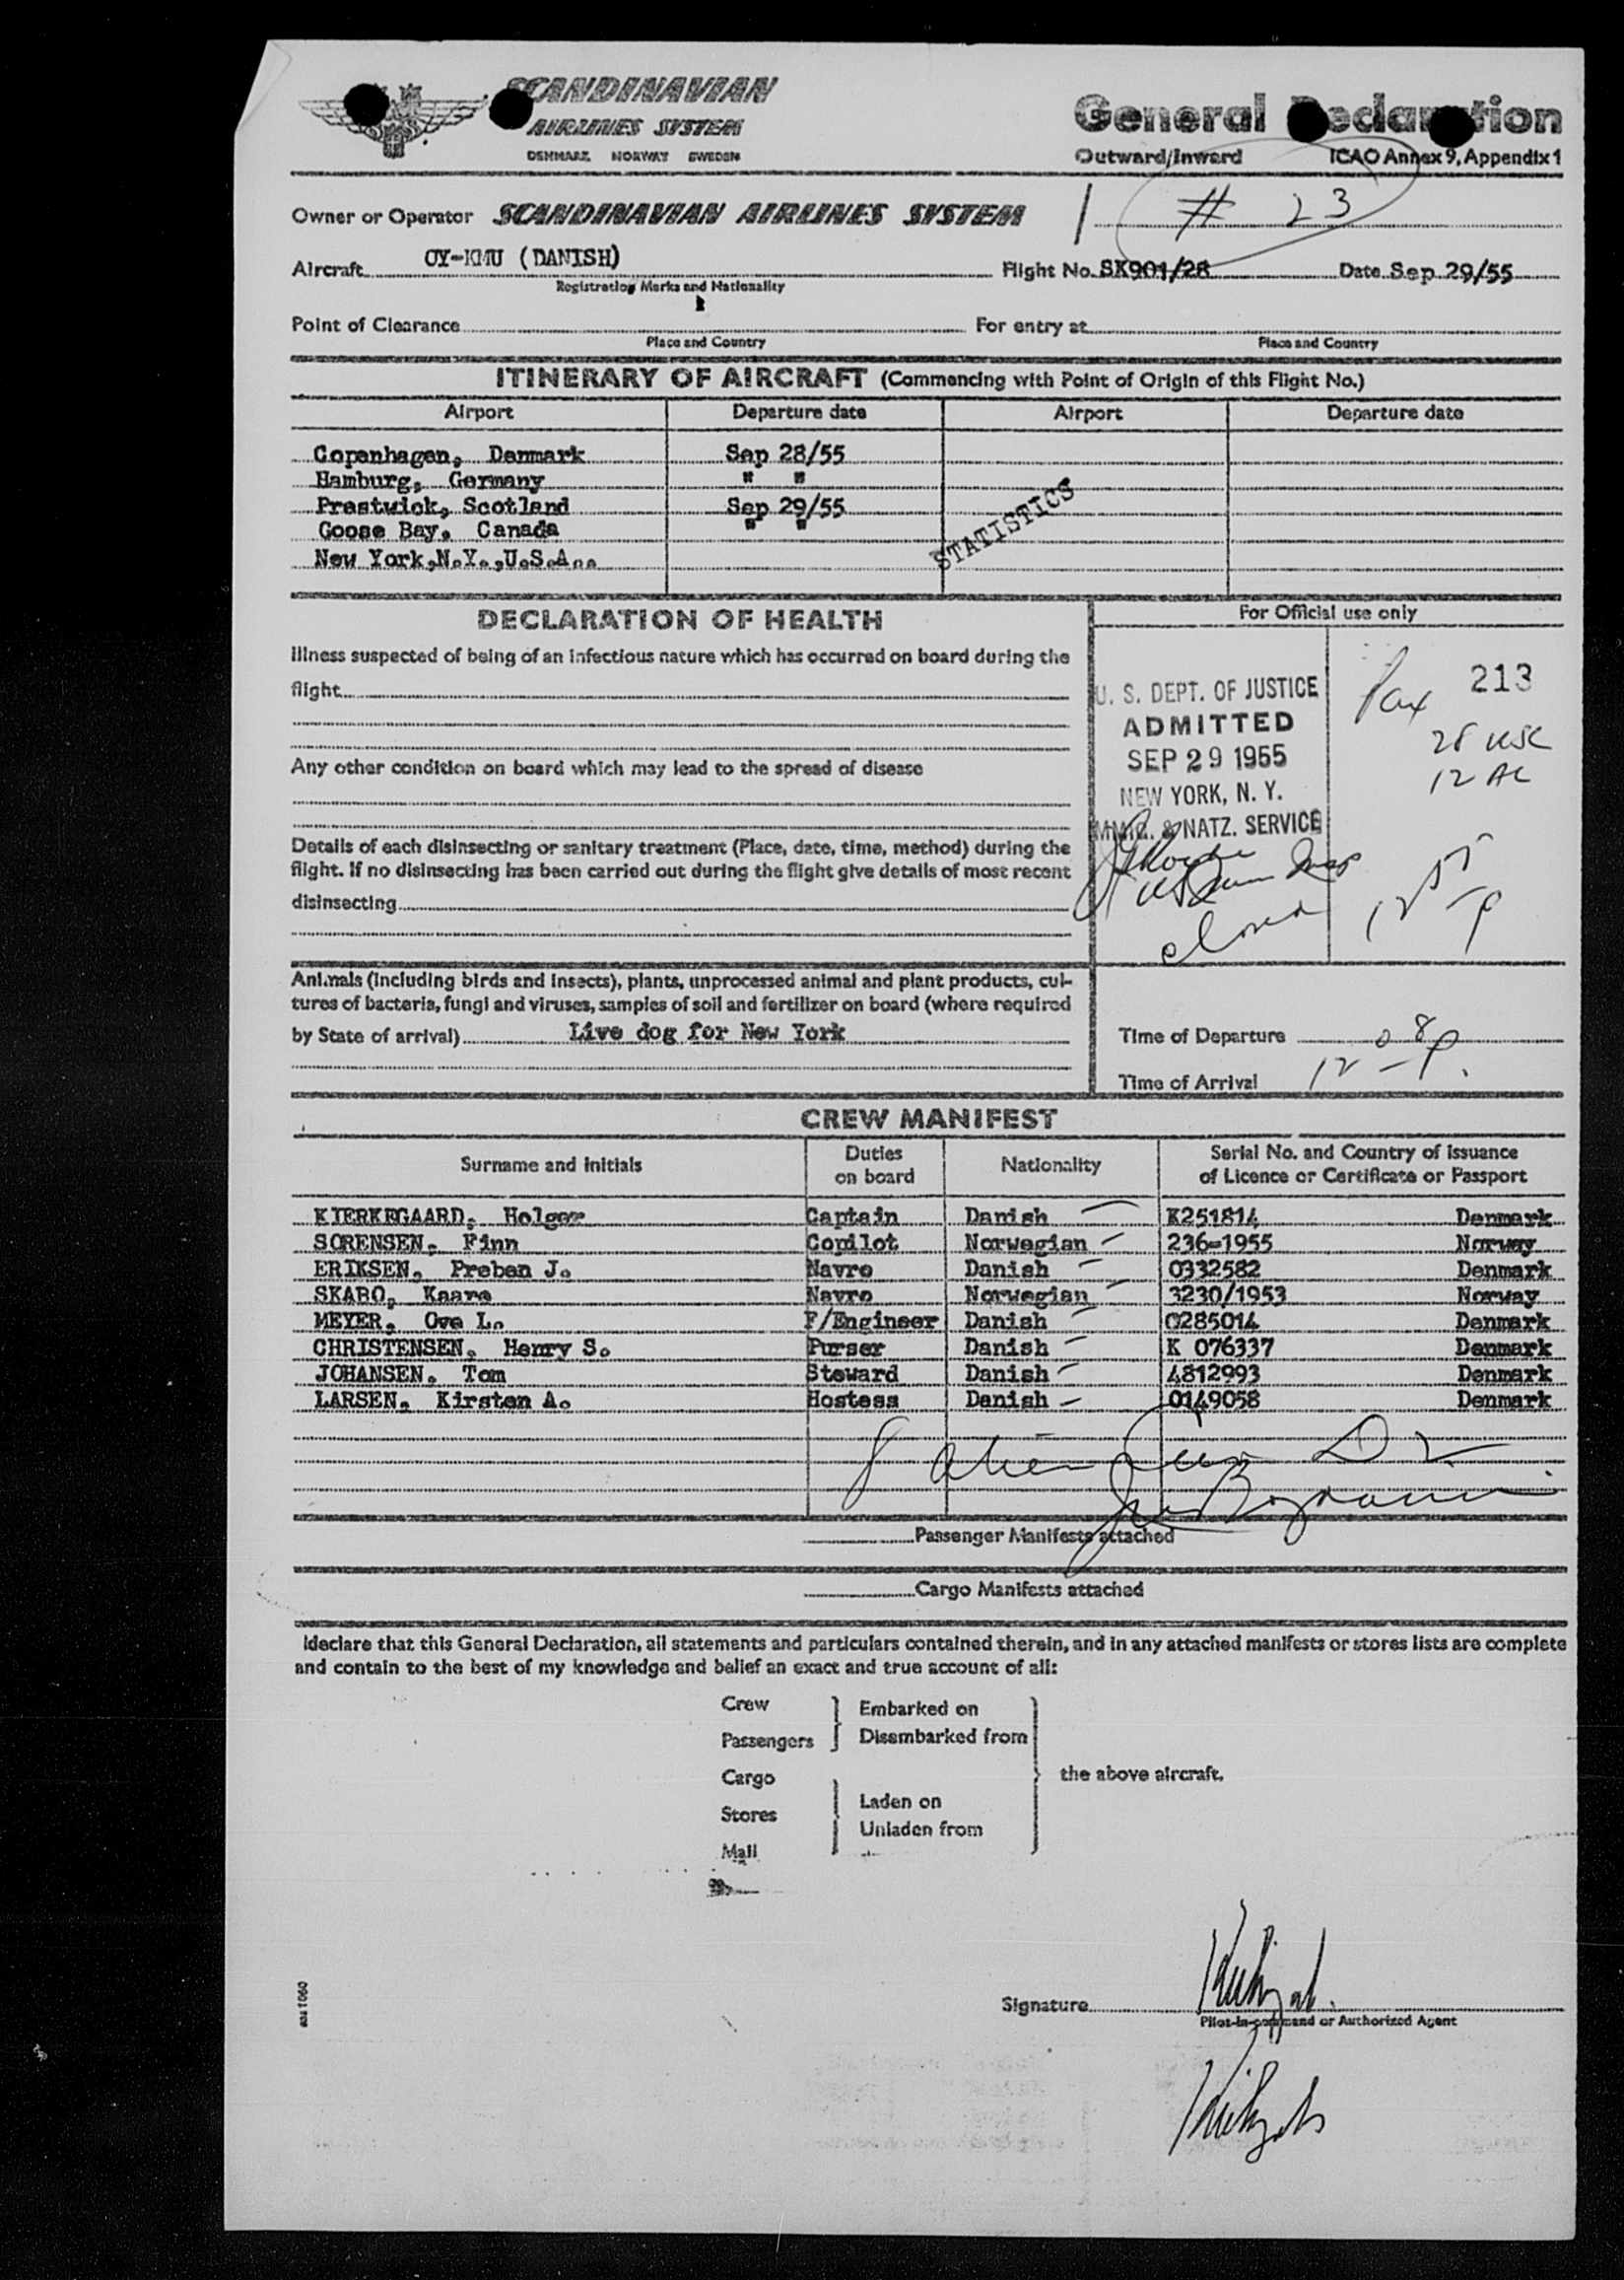 SCANDINAVIAN
AIRLINES SYSTEM
DENMARK NORWAY SWEDEN
General Declaration
Outward/Inward ICAO Annex 9, Appendix 1
Owner or Operator SCANDINAVIAN AIRLINES SYSTEM # 23
Aircraft OY-KMU (DANISH) Flight No. SK901/28 Date Sep 29/55
Registration Marks and Nationality
Point of Clearance For entry at
Place and Country Place and Country
ITINERARY OF AIRCRAFT (Commencing with Point of Origin of this Flight No.)
Airport Departure date Airport Departure date
Copenhagen, Denmark Sep 28/55
Hamburg, Germany " "
Prestwick, Scotland Sep 29/55
Goose Bay, Canada " "
New York,N.Y.,U.S.A..
STATISTICS
DECLARATION OF HEALTH
Illness suspected of being of an infectious nature which has occurred on board during the
flight
Any other condition on board which may lead to the spread of disease
Details of each disinsecting or sanitary treatment (Place, date, time, method) during the
flight. If no disinsecting has been carried out during the flight give details of most recent
disinsecting
For Official use only
U. S. DEPT. OF JUSTICE
ADMITTED
SEP 29 1955
NEW YORK, N. Y.
IMMIG. & NATZ. SERVICE
Pax 213
28 USC
12 AL
closed
12 55 P
Animals (including birds and insects), plants, unprocessed animal and plant products, cul-
tures of bacteria, fungi and viruses, samples of soil and fertilizer on board (where required
by State of arrival) Live dog for New York
Time of Departure
Time of Arrival 12 08 P.
CREW MANIFEST
Surname and initials Duties on board Nationality Serial No. and Country of issuance of Licence or Certificate or Passport
KIERKEGAARD, Holger Captain Danish K251814 Denmark
SORENSEN, Finn Copilot Norwegian 236-1955 Norway
ERIKSEN, Preben J. Navro Danish 0332582 Denmark
SKABO, Kaare Navro Norwegian 3230/1953 Norway
MEYER, Ove L. F/Engineer Danish 0285014 Denmark
CHRISTENSEN, Henry S. Purser Danish K 076337 Denmark
JOHANSEN, Tom Steward Danish 4812993 Denmark
LARSEN, Kirsten A. Hostess Danish 0149058 Denmark
8 alien crew
Passenger Manifests attached
Cargo Manifests attached
I declare that this General Declaration, all statements and particulars contained therein, and in any attached manifests or stores lists are complete
and contain to the best of my knowledge and belief an exact and true account of all:
Crew
Passengers
Embarked on
Disembarked from
Cargo
Stores
Mail
Laden on
Unladen from
the above aircraft.
Signature
Pilot-in-command or Authorized Agent
sas 1060